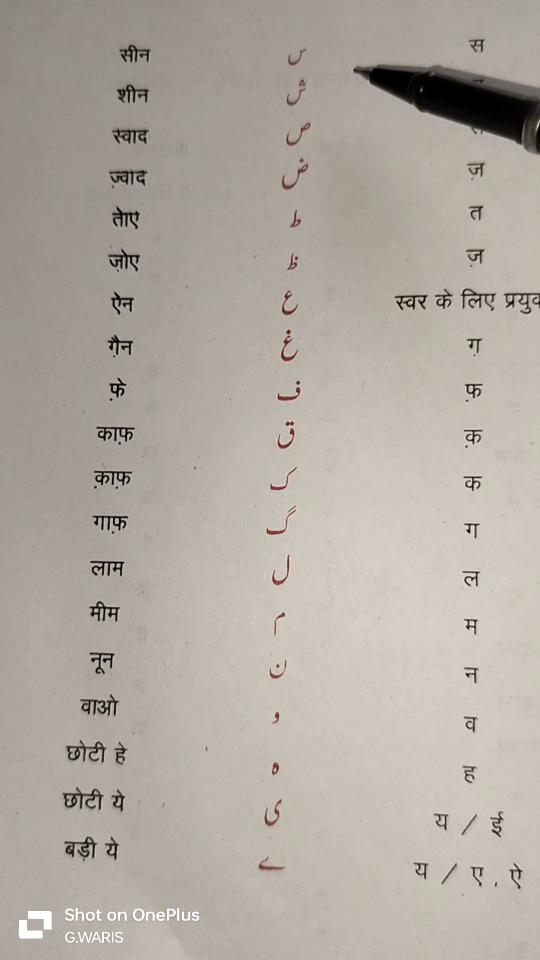 सीन س स
शीन ش
स्वाद ص
ज़्वाद ض ज़
तोए ط त
ज़ोए ظ ज़
ऐन ع स्वर के लिए
ग़ैन غ ग़
फ़े ف फ़
काफ़ ق क़
क़ाफ़ ک क
गाफ़ گ ग
लाम ل ल
मीम م म
नून ن न
वाओ و व
छोटी हे ہ ह
छोटी ये ی य / ई
बड़ी ये ے य / ए , ऐ
Shot on OnePlus
G.WARIS